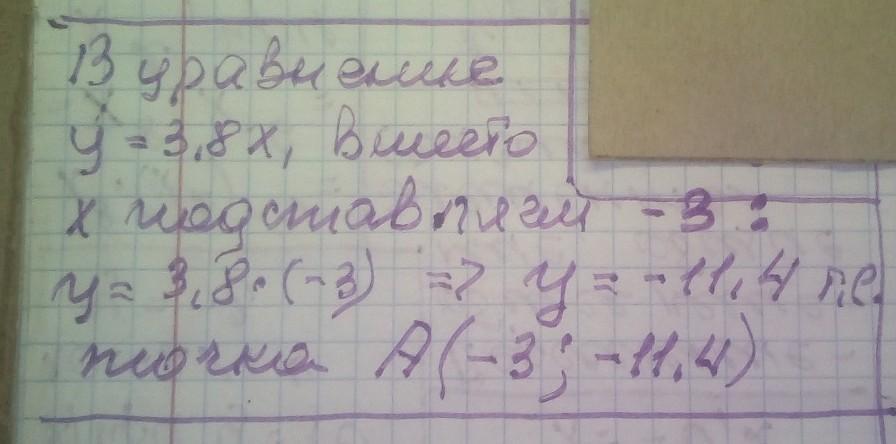 В уравнение
y = 3,8x, вместо
x подставляем -3:
y = 3,8·(-3) => y = -11,4 т.е.
точка A(-3; -11,4)